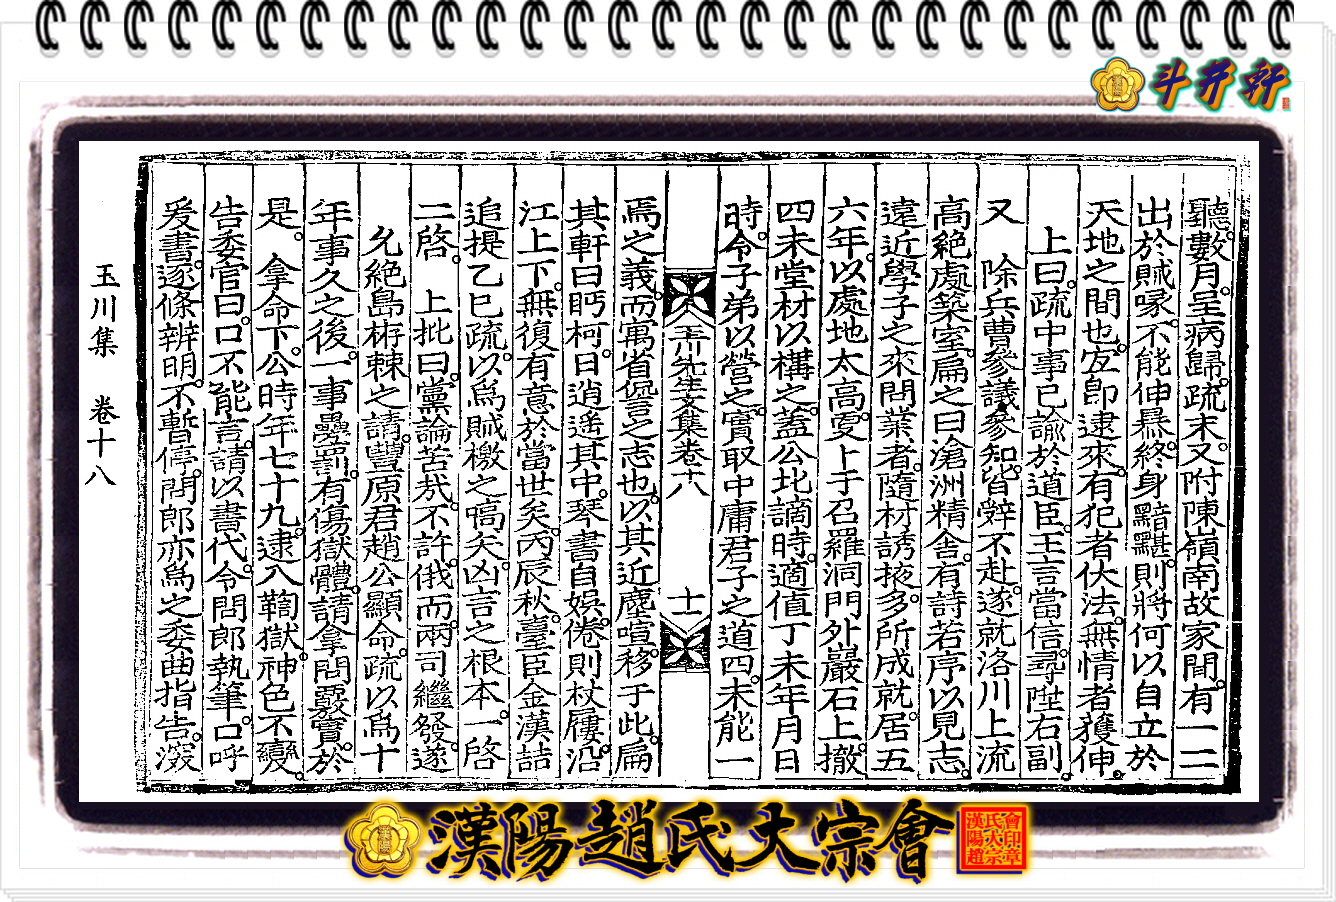 斗井軒
聽數月呈病歸疏末又附陳嶺南故家間有一二
出於賊喙不能伸暴終身黯黮則將何以自立於
天地之間也宜卽逮來有犯者伏法無情者獲伸
上曰疏中事已諭於道臣王言當信尋陞右副
又 除兵曹參議參知皆辭不赴遂就洛川上流
高絶處築室扁之曰滄洲精舍有詩若序以見志
遠近學子之來問業者隨材誘掖多所成就居五
六年以處地太高更卜于召羅洞門外巖石上撤
四未堂材以構之蓋公北謫時適值丁未年月日
時令子弟以營之實取中庸君子之道四未能一
玉川先生文集卷十八 十一
焉之義而寓省愆之志也以其近塵喧移于此扁
其軒曰眄柯日逍遙其中琴書自娛倦則杖屨沿
江上下無復有意於當世矣丙辰秋臺臣金漢喆
追提乙巳疏以爲賊檄之嚆矢凶言之根本一啓
二啓 上批曰黨論苦哉不許俄而兩司繼發遂
允絶島栫棘之請豐原君趙公顯命疏以爲十
年事久之後一事疊罰有傷獄體請拿問覈實於
是 拿命下公時年七十九逮入鞫獄神色不變
告委官曰口不能言請以書代令問郞執筆口呼
爰書逐條辨明不暫停問郞亦爲之委曲指告
玉川集 卷十八
漢陽趙氏大宗會
漢陽趙氏大宗會印章